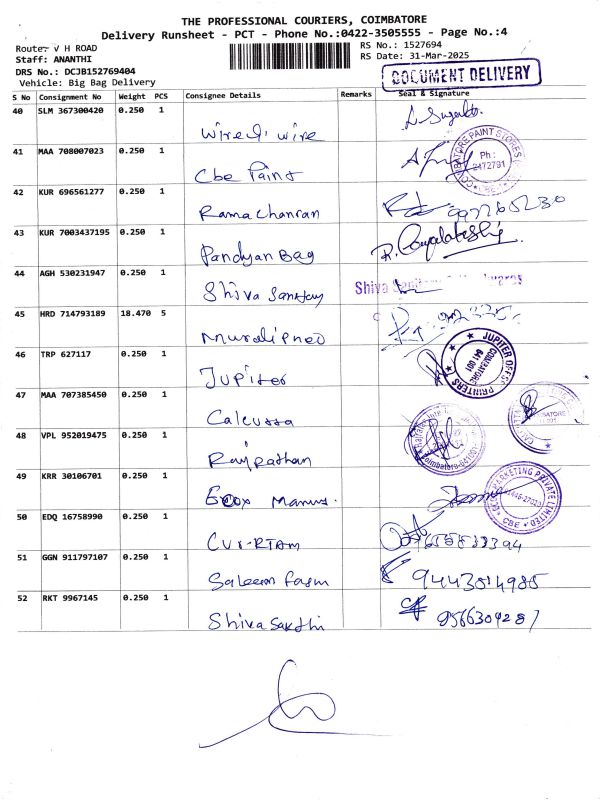 THE PROFESSIONAL COURIERS, COIMBATORE
Delivery Runsheet - PCT - Phone No.:0422-3505555 - Page No.:4
Route: V H ROAD RS No.: 1527694
Staff: ANANTHI RS Date: 31-Mar-2025
DRS No.: DCJB152769404
Vehicle: Big Bag Delivery
DOCUMENT DELIVERY
S No Consignment No Weight PCS Consignee Details Remarks Seal & Signature
40 SLM 367300420 0.250 1
41 MAA 708007023 0.250 1
Cbe Paint
COIMBATORE PAINT STORES
Ph.:
2472791
CBE
42 KUR 696561277 0.250 1
Rama Chanran
43 KUR 7003437195 0.250 1
Pandyan Bag
44 AGH 530231947 0.250 1
Shiva Sanitary
Shiva
45 HRD 714793189 18.470 5
46 TRP 627117 0.250 1
Jupiter
JUPITER OFFSET PRINTERS
COIMBATORE
641 001
47 MAA 707385450 0.250 1
48 VPL 952019475 0.250 1
49 KRR 30106701 0.250 1
MARKETING PRIVATE LIMITED
CBE
50 EDQ 16758990 0.250 1
51 GGN 911797107 0.250 1
Saleem
9443014985
52 RKT 9967145 0.250 1
Shiva Sakthi
9566304287